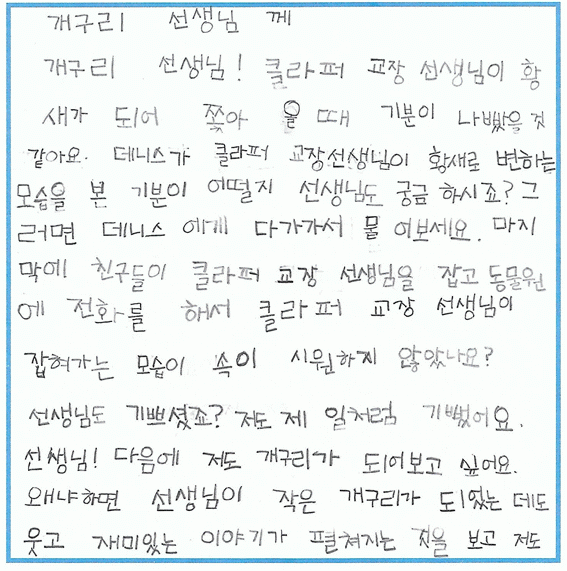 개구리 선생님 께
개구리 선생님! 클라퍼 교장 선생님이 황
새가 되어 쫓아 올 때 기분이 나빴을 것
같아요. 데니스가 클라퍼 교장선생님이 황새로 변하는
모습을 본 기분이 어떨지 선생님도 궁금 하시죠? 그
러면 데니스 에게 다가가서 물 어보세요. 마지
막에 친구들이 클라퍼 교장 선생님을 잡고 동물원
에 전화를 해서 클라퍼 교장 선생님이
잡혀가는 모습이 속이 시원하지 않았나요?
선생님도 기쁘셨죠? 저도 제 일처럼 기뻤어요.
선생님! 다음에 저도 개구리가 되어보고 싶어요.
왜냐하면 선생님이 작은 개구리가 되었는 데도
웃고 재미있는 이야기가 펼쳐지는 것을 보고 저도